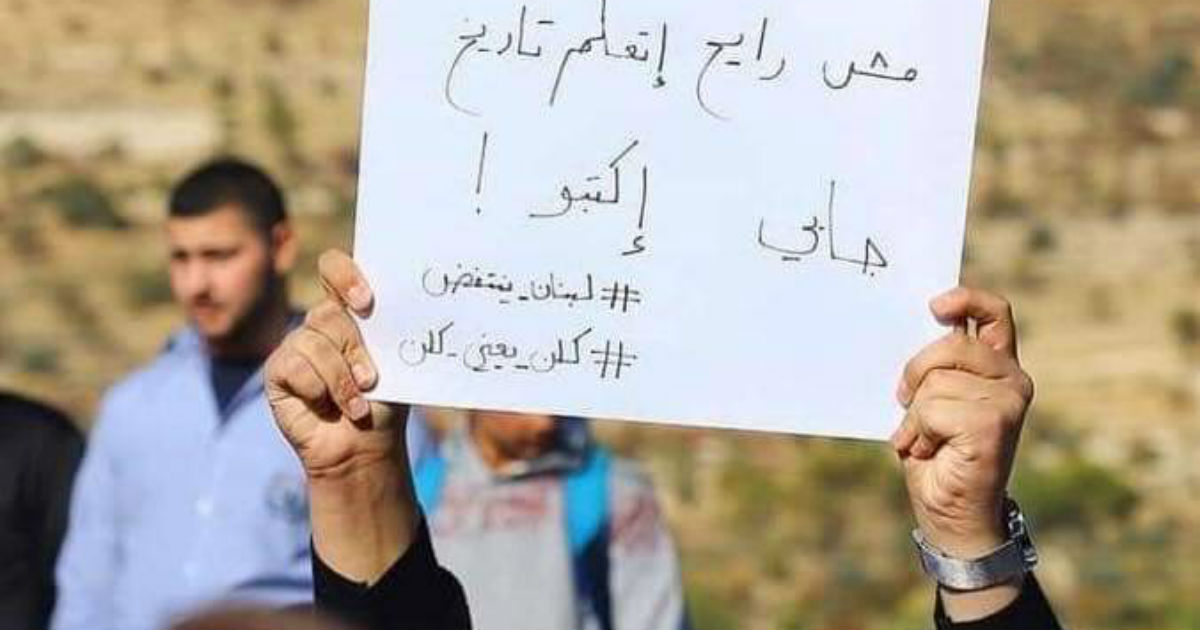 مش رايح إتعلم تاريخ
جايي إكتبو !
#لبنان_ينتفض
#كلن_يعني_كلن